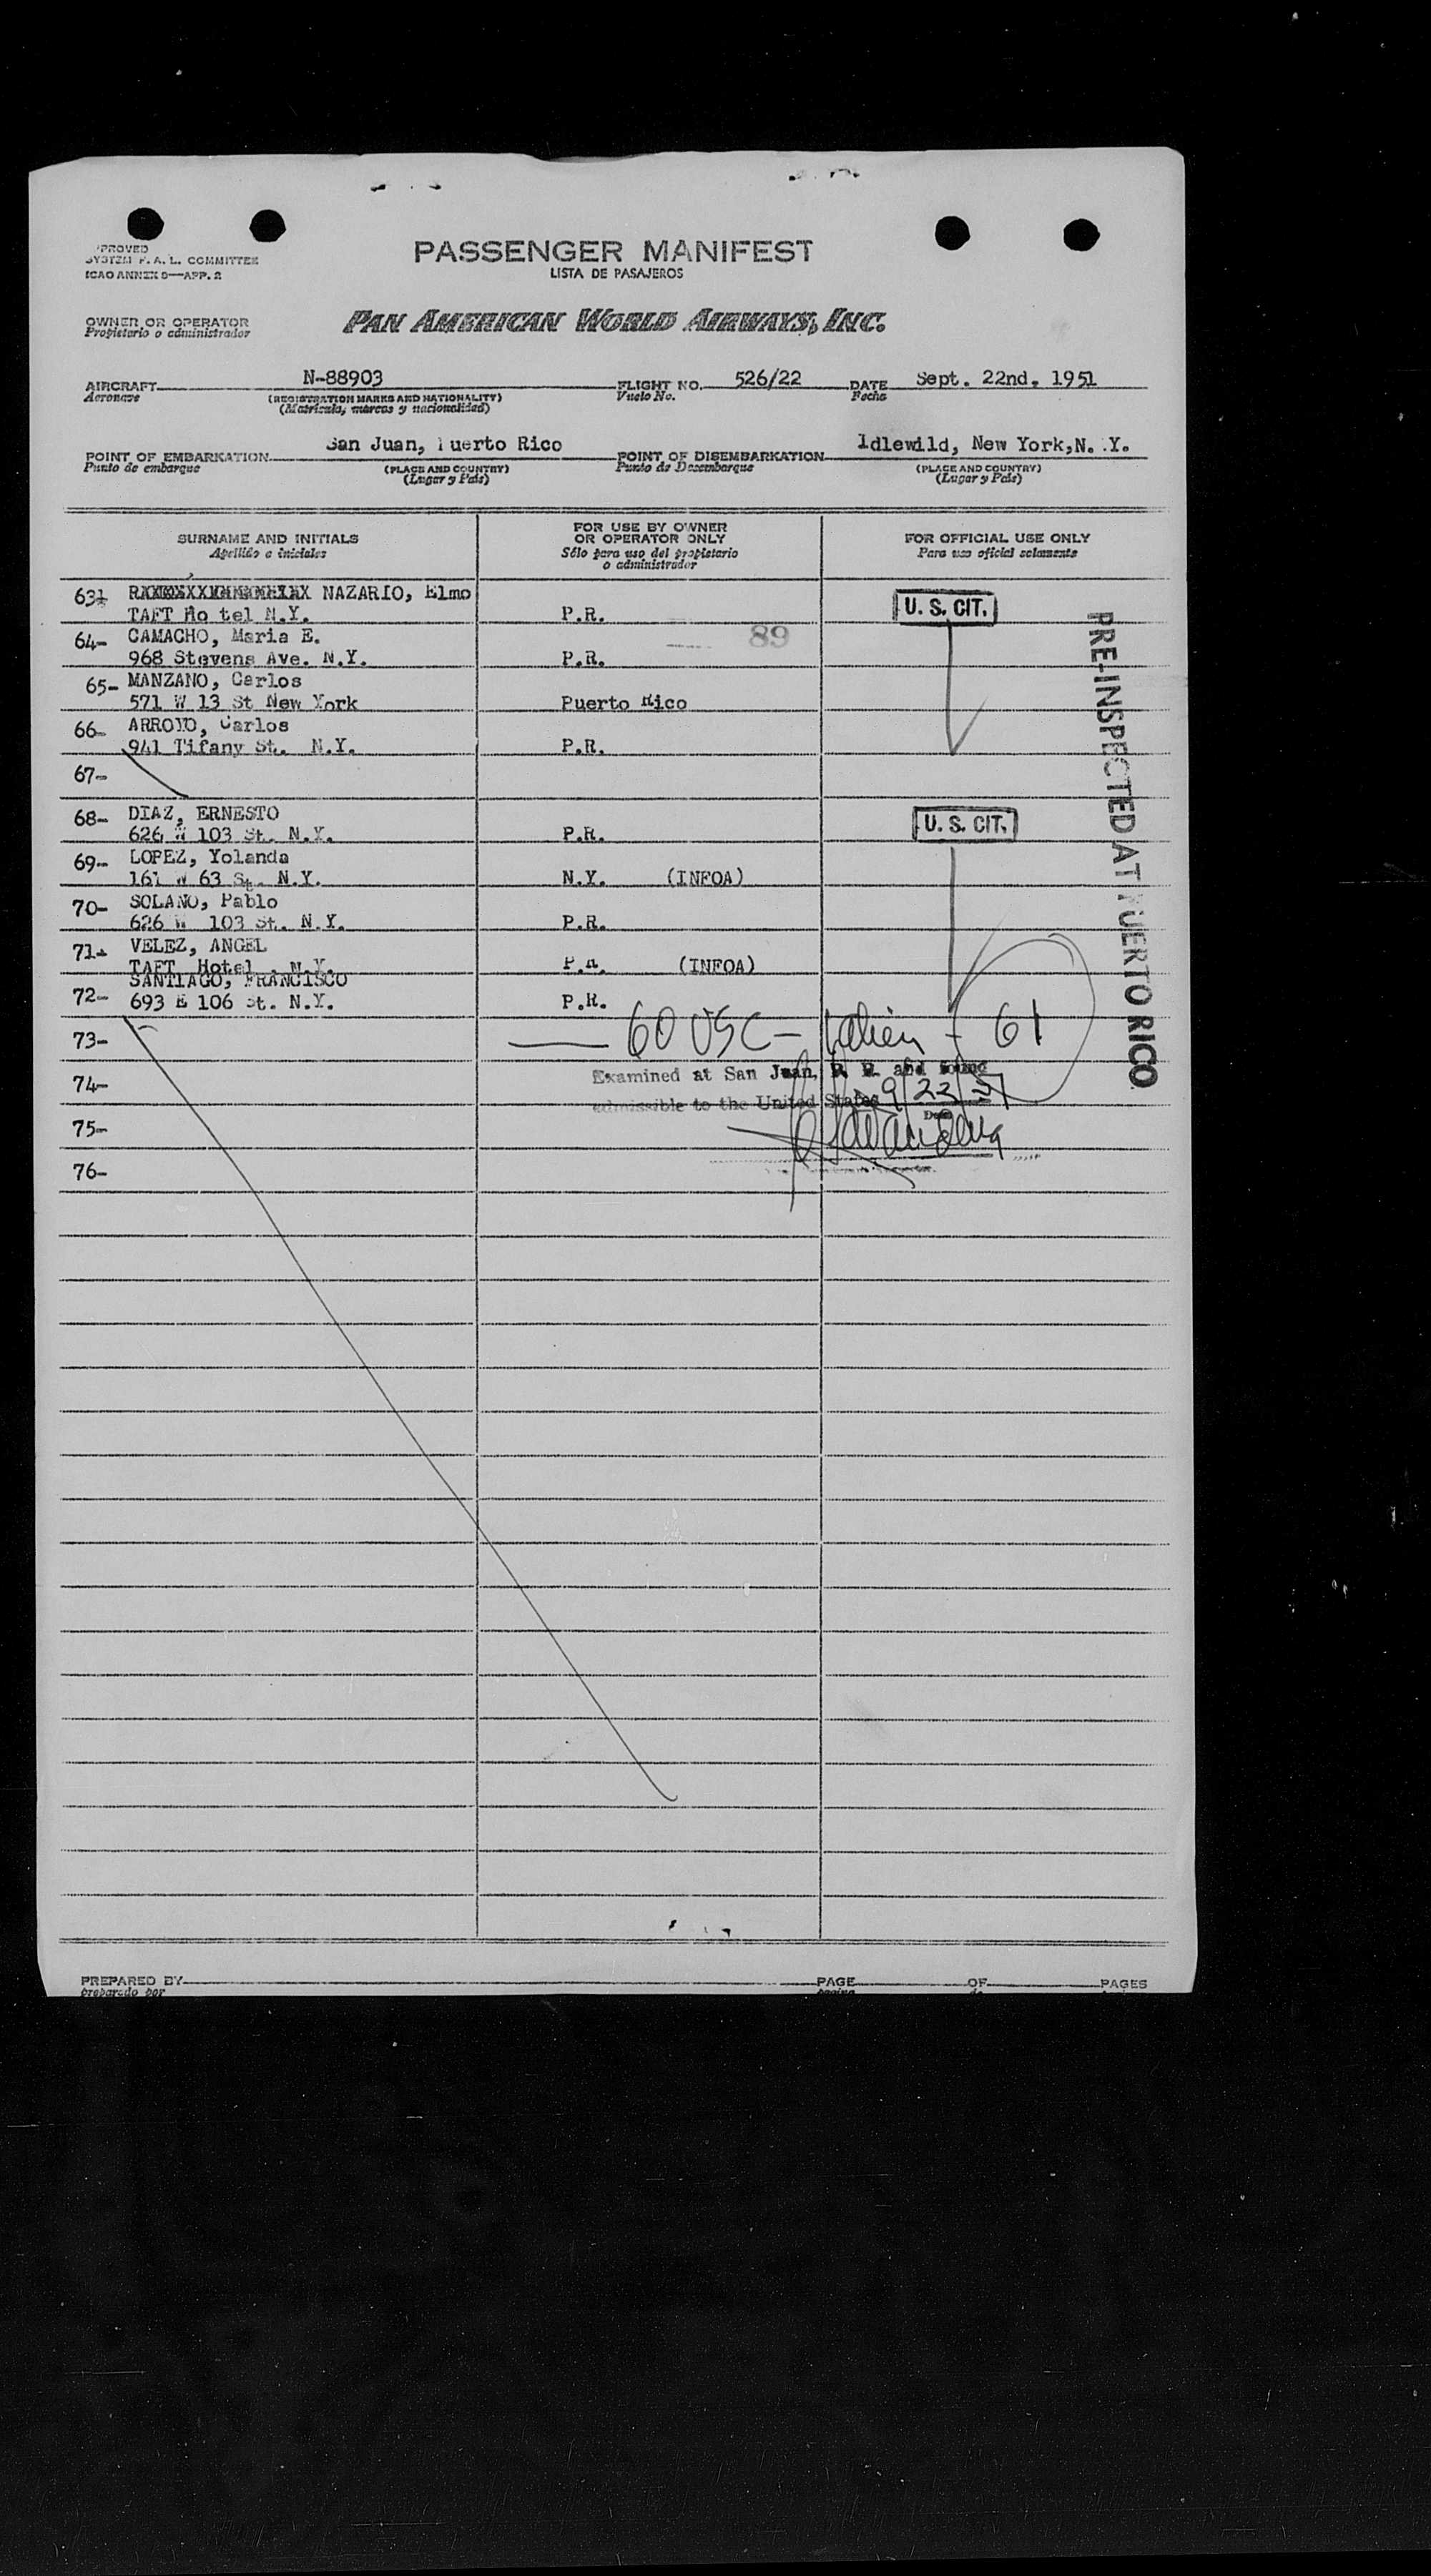 PASSENGER MANIFEST
LISTA DE PASAJEROS
PROVED
SYSTEM F. A. L. COMMITTEE
ICAO ANNEX 9—APP. 2
OWNER OR OPERATOR
Propietario o administrador
PAN AMERICAN WORLD AIRWAYS, INC.
AIRCRAFT N-88903 FLIGHT NO. 526/22 DATE Sept. 22nd, 1951
Aeronave (REGISTRATION MARKS AND NATIONALITY) Vuelo No. Fecha
(Matrícula, marcas y nacionalidad)
POINT OF EMBARKATION San Juan, Puerto Rico POINT OF DISEMBARKATION Idlewild, New York,N. Y.
Punto de embarque (PLACE AND COUNTRY) Punto de Desembarque (PLACE AND COUNTRY)
(Lugar y País) (Lugar y País)
SURNAME AND INITIALS
Apellido e iniciales
FOR USE BY OWNER
OR OPERATOR ONLY
Sólo para uso del propietario
o administrador
FOR OFFICIAL USE ONLY
Para uso oficial solamente
63- NAZARIO, Elmo U. S. CIT.
TAFT Ho tel N.Y. P.R.
64- CAMACHO, Maria E. 89
968 Stevens Ave. N.Y. P.R.
65- MANZANO, Carlos
571 W 13 St New York Puerto Rico
66- ARROYO, Carlos
941 Tifany St. N.Y. P.R.
67-
68- DIAZ, ERNESTO U. S. CIT.
626 W 103 St. N.Y. P.R.
69- LOPEZ, Yolanda
161 W 63 St. N.Y. N.Y. (INFOA)
70- SOLANO, Pablo
626 W 103 St. N.Y. P.R.
71- VELEZ, ANGEL
TAFT Hotel . N.Y. P.R. (INFOA)
SANTIAGO, FRANCISCO
72- 693 E 106 St. N.Y. P.R.
73- 60 USC - 1 alien - 61
74- Examined at San Juan, P. R. and found
admissible to the United States 9/22/51
Date
75-
76-
PRE-INSPECTED AT PUERTO RICO
PREPARED BY PAGE OF PAGES
preparado por página de